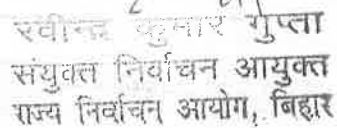 रवीन्द्र कुमार गुप्ता
संयुक्त निर्वाचन आयुक्त
राज्य निर्वाचन आयोग, बिहार